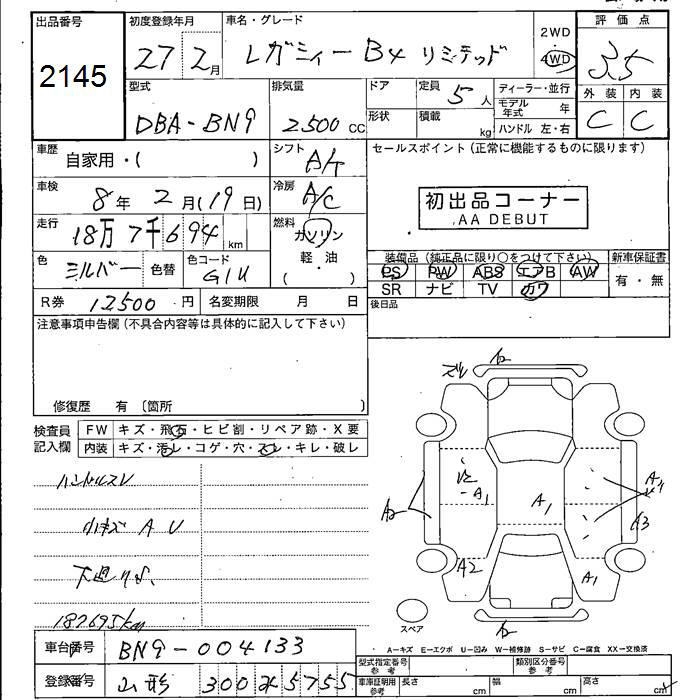 出品番号
2145
初度登録年月
27 2月
車名・グレード
レガシィー B4 リミテッド
2WD
4WD
評価点
3.5
型式
DBA-BN9
排気量
2500 CC
ドア
形状
定員
5人
積載
kg
ディーラー・並行
モデル年式 年
ハンドル 左・右
外装 内装
C C
車歴
自家用・( )
シフト
A/T
セールスポイント(正常に機能するものに限ります)
初出品コーナー
AA DEBUT
車検
8年 2月(19日)
冷房
A/C
走行
18万7千694 km
燃料
ガソリン
軽・油
( )
色
シルバー 色替
色コード
G1U
装備品(純正品に限り○をつけて下さい)
PS PW ABS エアB AW
SR ナビ TV カワ
新車保証書
有・無
R券 12500円
名変期限 月 日
後日品
注意事項申告欄(不具合内容等は具体的に記入して下さい)
修復歴 有 〔箇所 〕
検査員記入欄
FW キズ・飛石・ヒビ割・リペア跡・X要
内装 キズ・汚レ・コゲ・穴・スレ・キレ・破レ
ハンドルスレ
小キズ A U
187695km
A1
A1
A2
A1
A2
A3
スペア
A=キズ E=エクボ U=凹み W=補修跡 S=サビ C=腐食 XX=交換済
車台番号
BN9-004133
登録番号
山形 300 5755
型式指定番号
参考
類別区分番号
参考
車庫証明用
参考
長さ cm
幅 cm
高さ cm